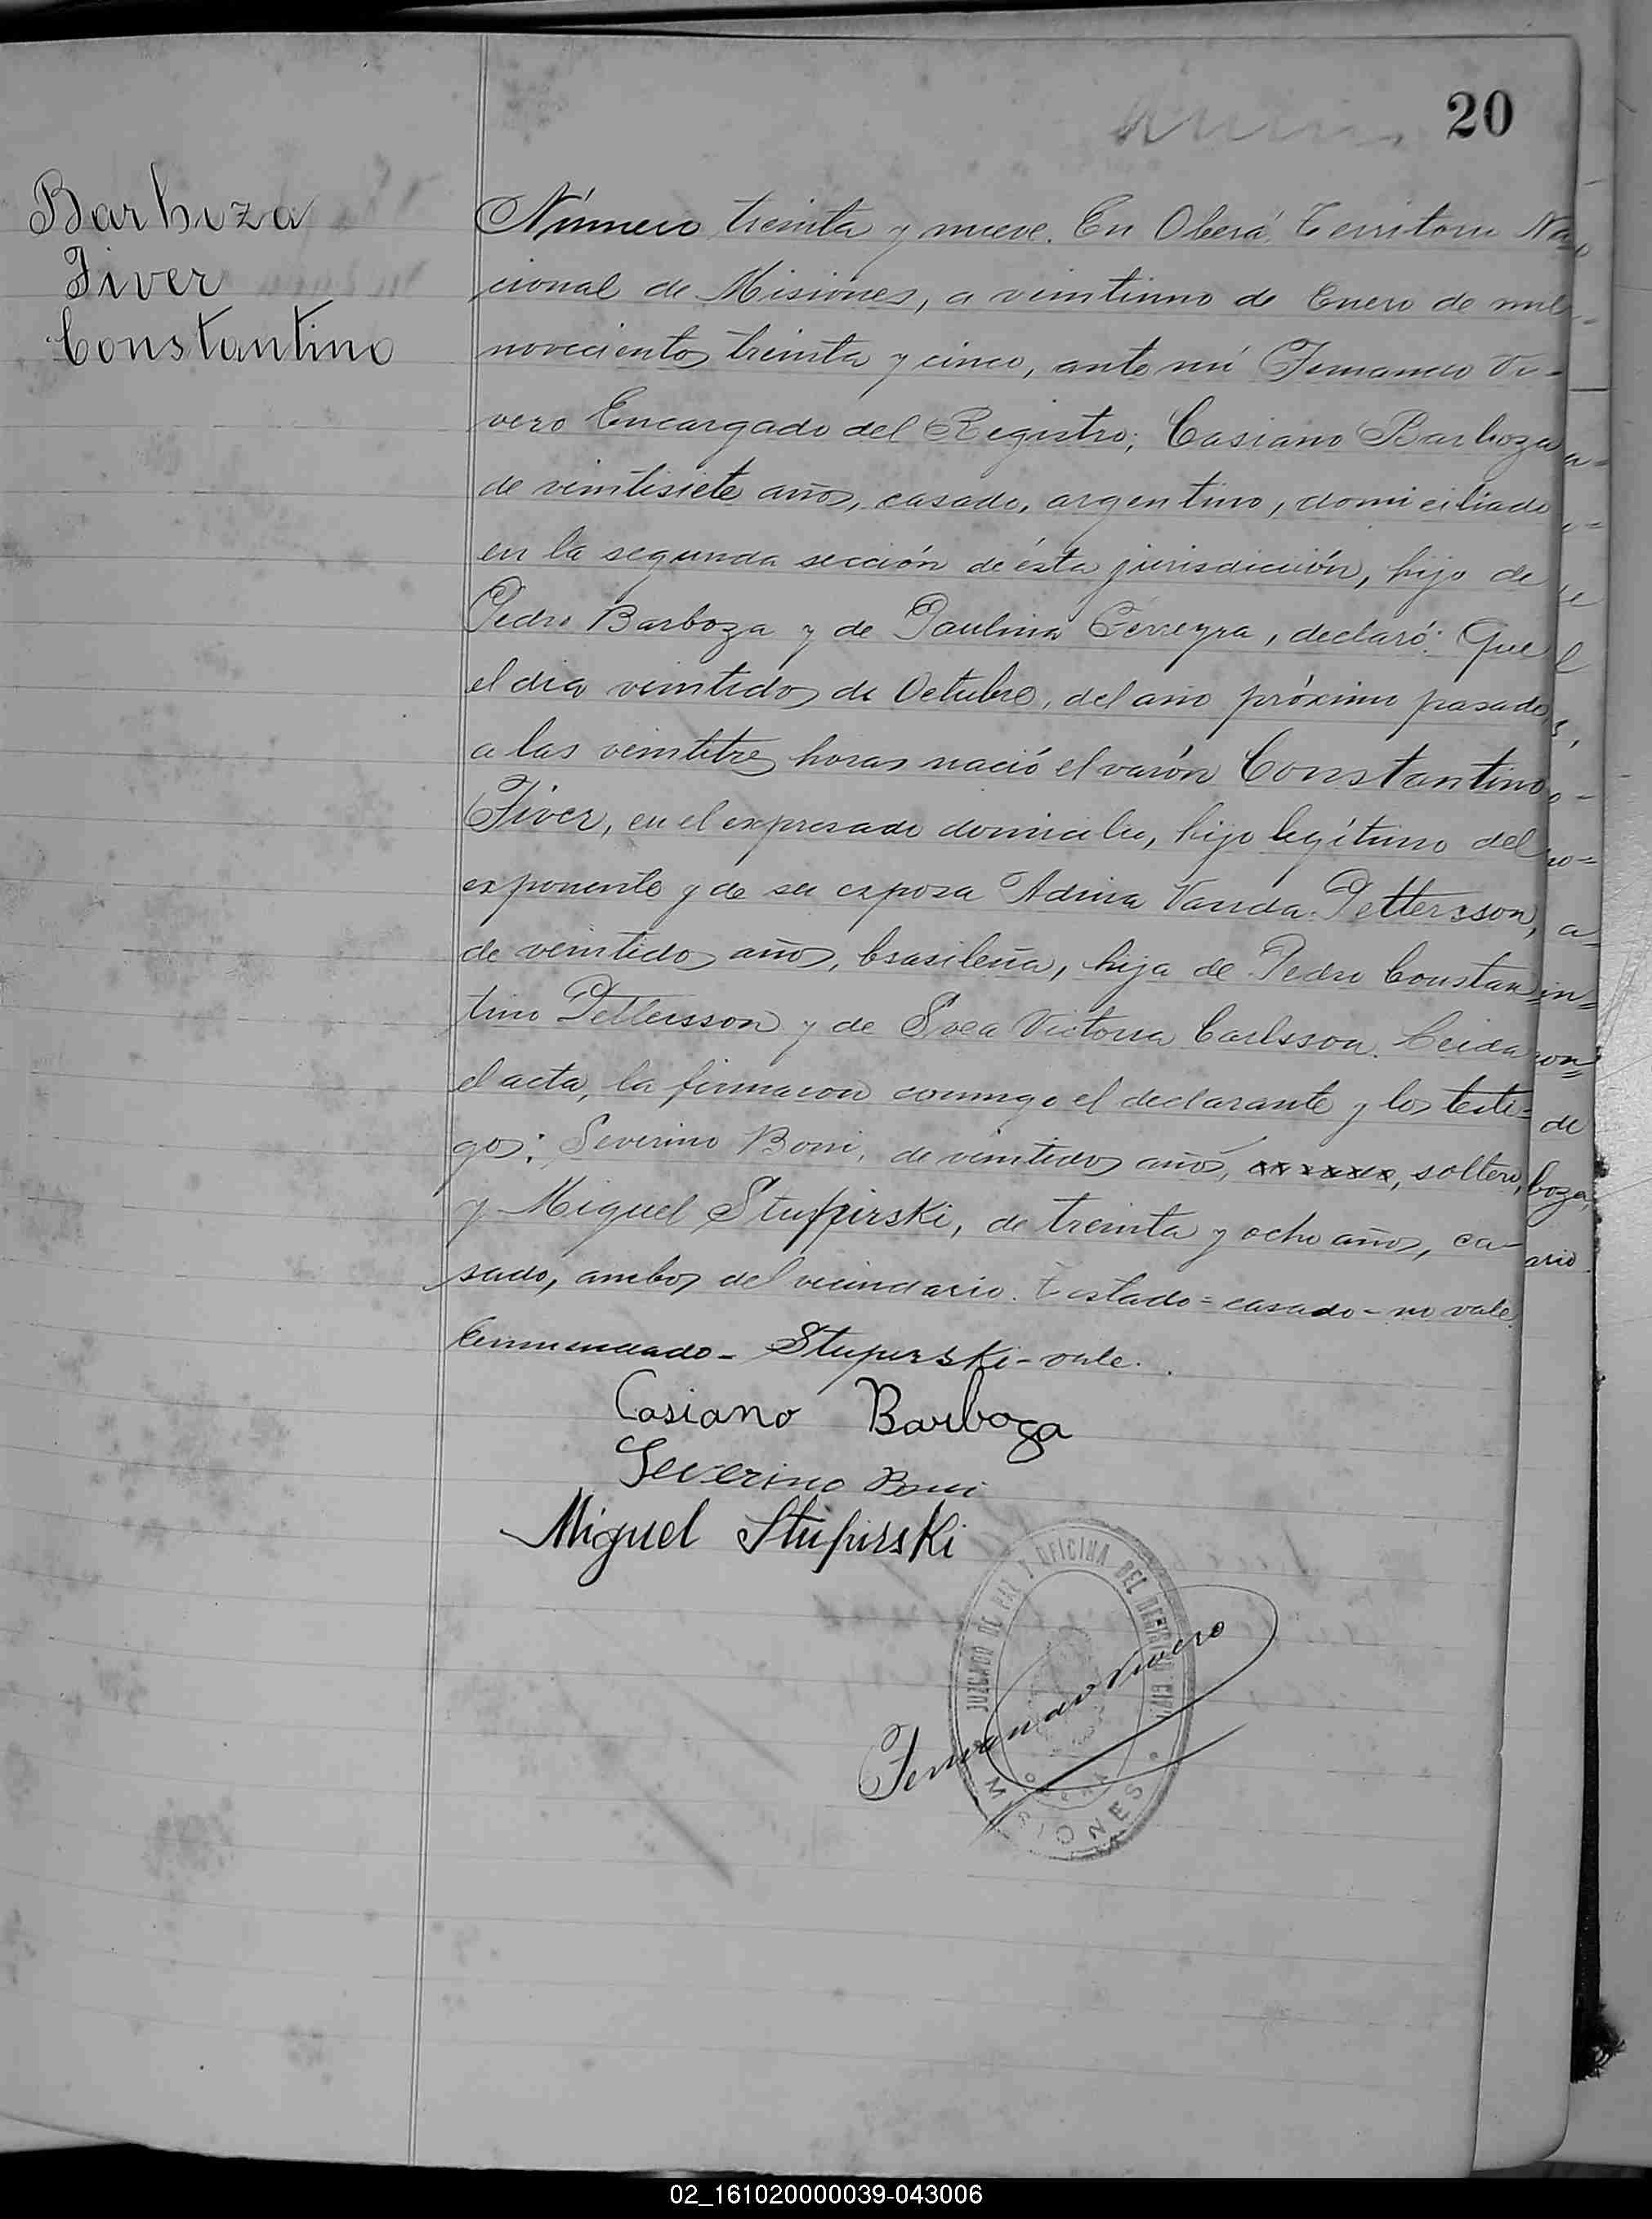 20
Barboza
Fiver
Constantino
Número treinta y nueve. En Oberá, Territorio Na-
cional de Misiones, a veintiuno de Enero de mil
novecientos treinta y cinco, ante mí Fernando Vi-
vero Encargado del Registro; Casiano Barboza
de veintisiete años, casado, argentino, domiciliado
en la segunda sección de ésta jurisdicción, hijo de
Pedro Barboza y de Paulina Ferreyra, declaró: Que
el dia veintidos de Octubre, del año próximo pasado
a las veintitres horas nació el varón Constantino
Fiver, en el expresado domicilio, hijo legítimo del
exponente y de su esposa Adina Vanda Pettersson,
de veintidos años, brasileña, hija de Pedro Constan
tino Pettersson y de Svea Victoria Carlsson. Leida
el acta, la firmaron conmigo el declarante y los testi-
gos: Severino Boni, de veintidos años, soltero,
y Miguel Stupirski, de treinta y ocho años, ca-
sado, ambos del vecindario. Testado=casado-no vale.
Enmendado-Stupirski-vale.
Casiano Barboza
Severino Boni
Miguel Stupirski
Fernando Vivero
JUZGADO DE PAZ Y OFICINA DEL REGISTRO CIVIL
OBERA
MISIONES
02_161020000039-043006